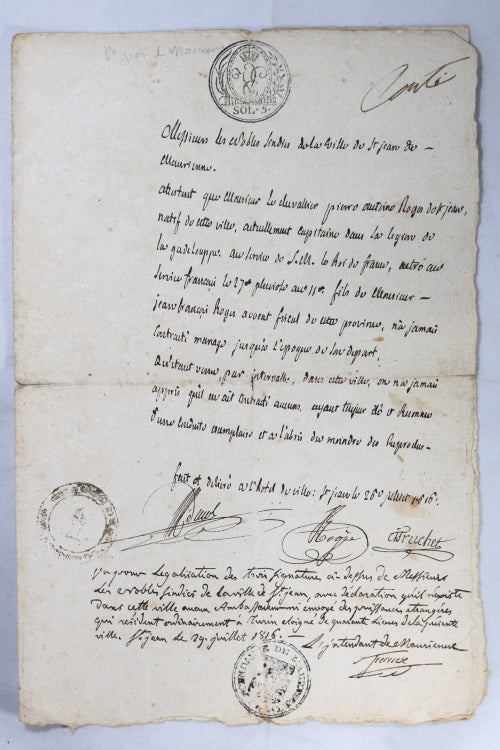 St jean de Maurienne
SOL. 5.
Messieurs les Nobles sindics de la ville de St jean de
Maurienne.
attestent que Monsieur le chevallier pierre antoine Roges de St jean,
natif de cette ville, actuellement capitaine dans la legion de
la guadeloupe au service de S. M. le Roi de france, entré au
service francais le 27e pluviose an 11e. fils de Monsieur
jean francois Roges avocat fiscal de cette province, n'a jamais
contracté mariage jusqu'à l'epoque de son depart,
qu'etant venu, par intervalle, dans cette ville, on n'a jamais
appris qu'il en ait contracté aucun, ayant toujours été Reconnu
d'une conduite exemplaire et a l'abris du moindre des Reproches
fait et délivré a l'hotel de ville: St jean le 26e juillet 1816.
Pruchet
Vu pour Legalisation des trois signatures ci-dessus de Messieurs
Les Nobles sindics de la ville de St jean, avec declaration qu'il n'existe
dans cette ville aucun Ambassadeur ni envoyé des puissances etrangères
qui resident ordinairement à turin eloigné de quarante Lieues de la présente
ville. St jean de 29. juillet 1816.
L'intendant de Maurienne